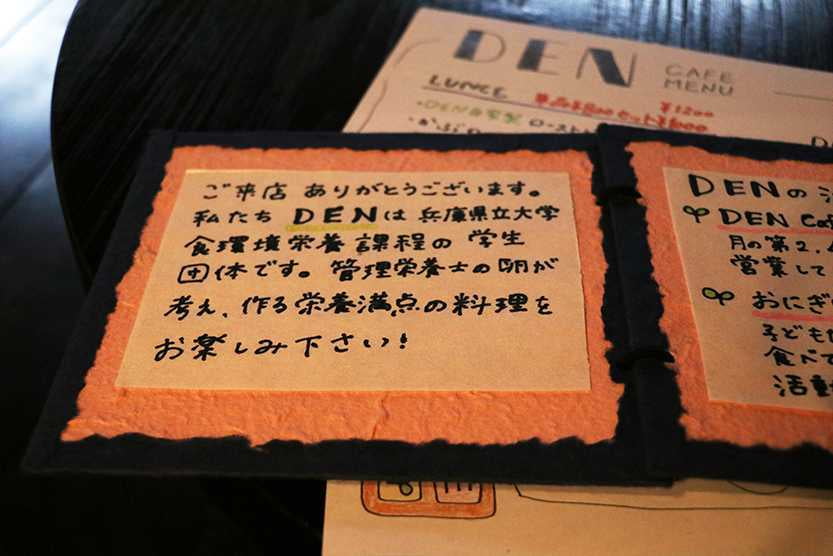 DEN
CAFE
MENU
LUNCH
¥1200
・DEN自家製 ロースト
ご来店 ありがとうございます。
私たち DENは 兵庫県立大学
食環境栄養課程の 学生
団体です。管理栄養士の卵が
考え、作る栄養満点の料理を
お楽しみ下さい!
DENの
DEN Caf
月の第2,
営業して
おにぎ
子ども
食べ
活動